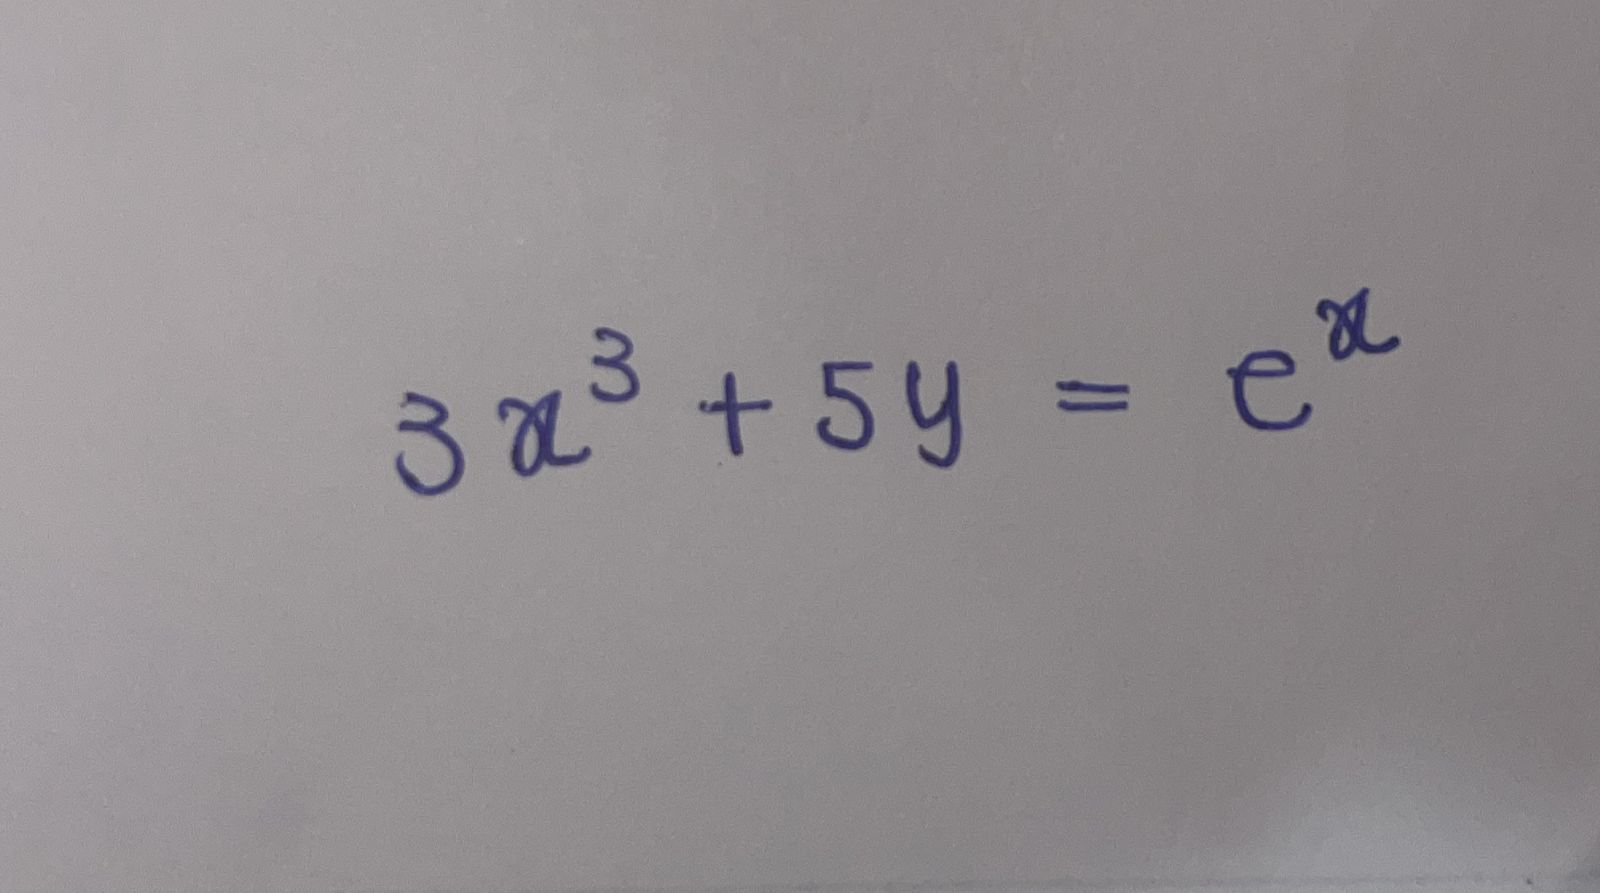 3x³ + 5y = eˣ